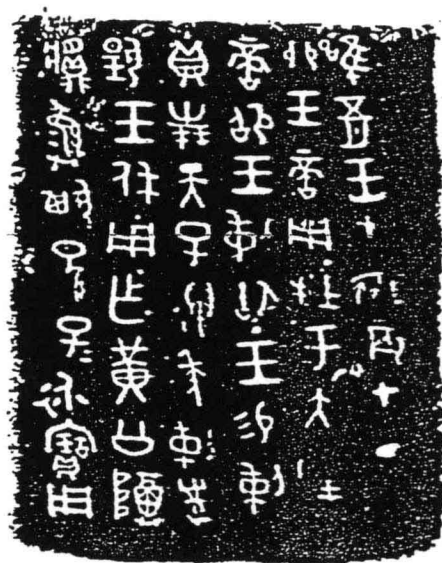 唯五月王才辰才丁
卯王啻用牡于大室
啻卲王剌御王易剌
貝卅朋天子萬年剌對
揚王休用乍黃公尊
䵼彝其孫孫子子永寶用